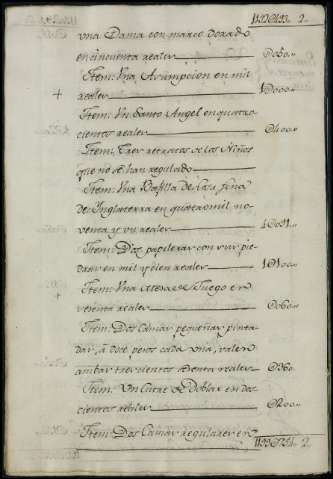 una Dama con marco dorado
en cincuenta reales U050..
Item: Una Asumpcion en mil
+ reales 1U000..
Item: Un Santo Angel en quatro
cientos reales U400..
Item: Tres retratos de los Niños
que no se han regulado
Item: Una de
de Inglaterra en quatro mil no-
venta y un reales
Item: Dos papeleras con sus pie-
dras en mil y cien reales 1U100..
Item: Una Mesa de Juego en
+ sesenta reales U060..
Item: Dos Camas pequeñas pinta-
das, á doce pesos cada una, valen
ambas trescientos sesenta reales U360..
Item: Un Catre de Doblar en dos
cientos reales U200..
Item: Dos Camas regulares en